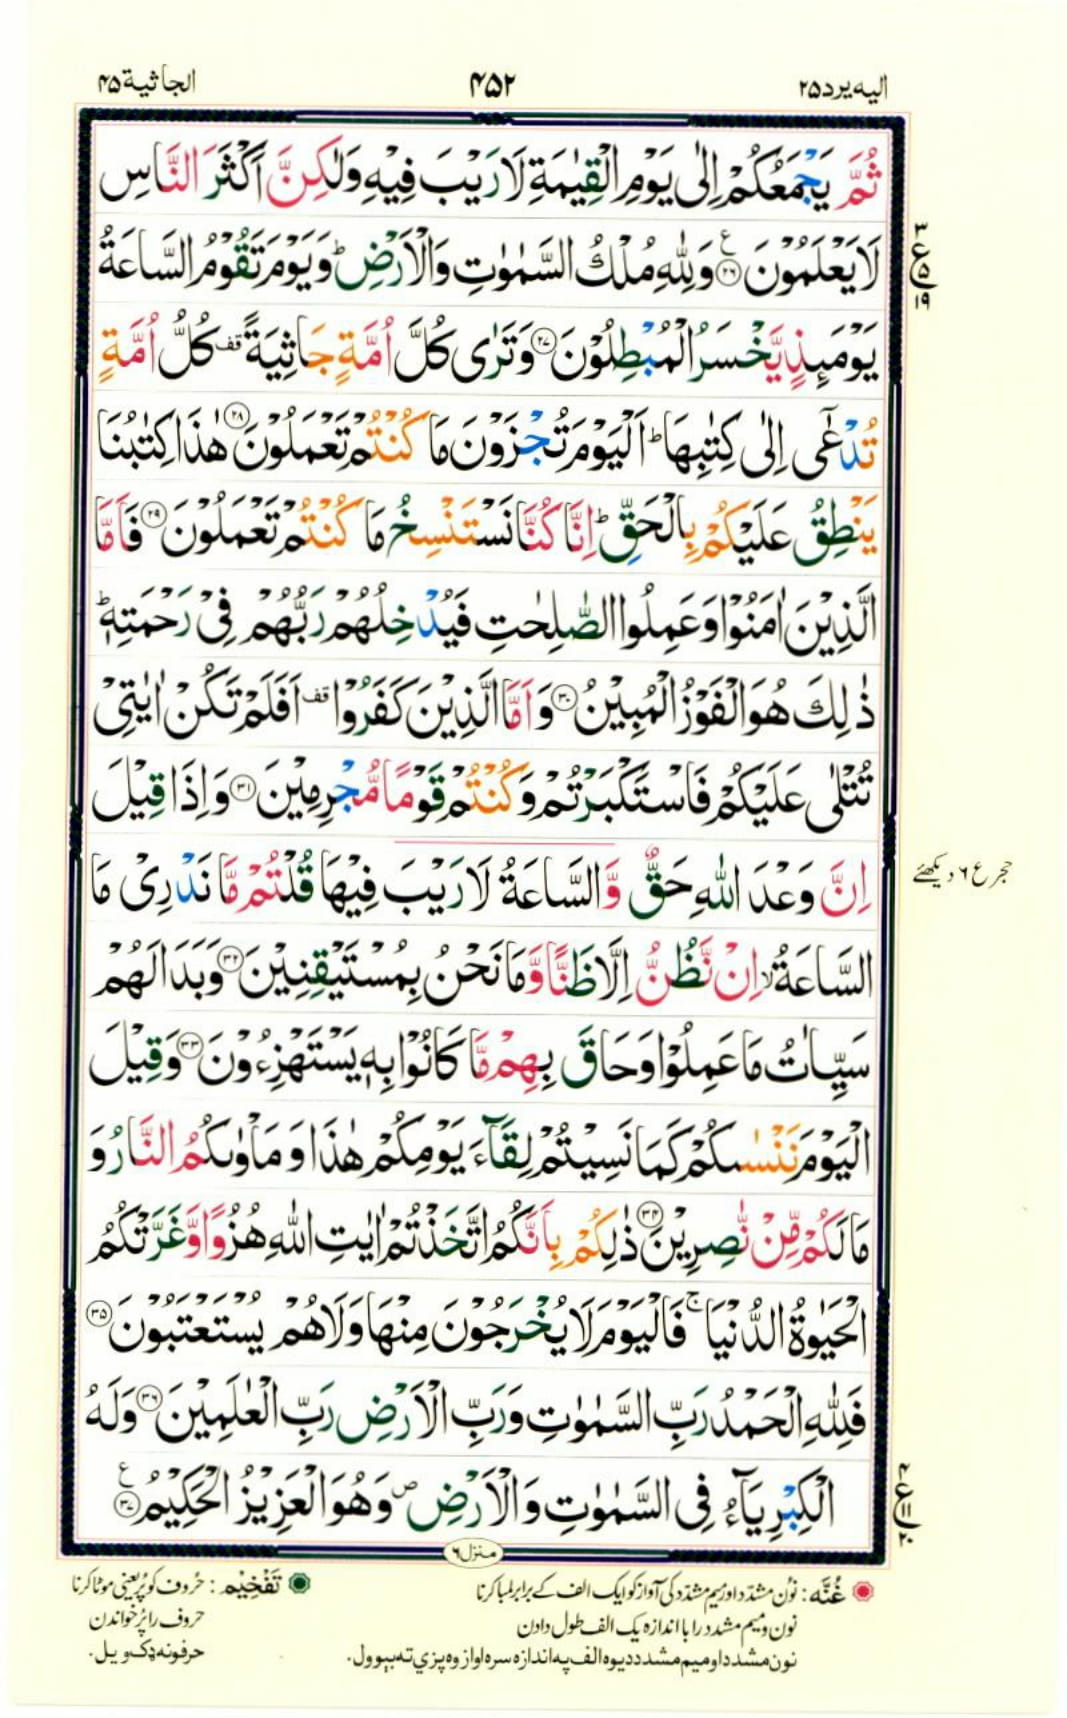 الیه یرد ۲۵
۴۵۲
الجاثیة ۴۵
ثُمَّ يَجْمَعُكُمْ اِلٰى يَوْمِ الْقِيٰمَةِ لَا رَيْبَ فِيْهِ وَلٰكِنَّ اَكْثَرَ النَّاسِ
لَا يَعْلَمُوْنَ ۲۶ ع وَلِلّٰهِ مُلْكُ السَّمٰوٰتِ وَالْاَرْضِ ؕ وَيَوْمَ تَقُوْمُ السَّاعَةُ
يَوْمَئِذٍ يَّخْسَرُ الْمُبْطِلُوْنَ ۲۷ وَتَرٰى كُلَّ اُمَّةٍ جَاثِيَةً قف كُلُّ اُمَّةٍ
تُدْعٰٓى اِلٰى كِتٰبِهَا ؕ اَلْيَوْمَ تُجْزَوْنَ مَا كُنْتُمْ تَعْمَلُوْنَ ۲۸ هٰذَا كِتٰبُنَا
يَنْطِقُ عَلَيْكُمْ بِالْحَقِّ ؕ اِنَّا كُنَّا نَسْتَنْسِخُ مَا كُنْتُمْ تَعْمَلُوْنَ ۲۹ فَاَمَّا
الَّذِيْنَ اٰمَنُوْا وَعَمِلُوا الصّٰلِحٰتِ فَيُدْخِلُهُمْ رَبُّهُمْ فِيْ رَحْمَتِهٖ ؕ
ذٰلِكَ هُوَ الْفَوْزُ الْمُبِيْنُ ۳۰ وَاَمَّا الَّذِيْنَ كَفَرُوْا قف اَفَلَمْ تَكُنْ اٰيٰتِيْ
تُتْلٰى عَلَيْكُمْ فَاسْتَكْبَرْتُمْ وَكُنْتُمْ قَوْمًا مُّجْرِمِيْنَ ۳۱ وَاِذَا قِيْلَ
اِنَّ وَعْدَ اللّٰهِ حَقٌّ وَّالسَّاعَةُ لَا رَيْبَ فِيْهَا قُلْتُمْ مَّا نَدْرِيْ مَا
السَّاعَةُ ۙ اِنْ نَّظُنُّ اِلَّا ظَنًّا وَّمَا نَحْنُ بِمُسْتَيْقِنِيْنَ ۳۲ وَبَدَا لَهُمْ
سَيِّاٰتُ مَا عَمِلُوْا وَحَاقَ بِهِمْ مَّا كَانُوْا بِهٖ يَسْتَهْزِءُوْنَ ۳۳ وَقِيْلَ
الْيَوْمَ نَنْسٰىكُمْ كَمَا نَسِيْتُمْ لِقَآءَ يَوْمِكُمْ هٰذَا وَمَاْوٰىكُمُ النَّارُ وَ
مَا لَكُمْ مِّنْ نّٰصِرِيْنَ ۳۴ ذٰلِكُمْ بِاَنَّكُمُ اتَّخَذْتُمْ اٰيٰتِ اللّٰهِ هُزُوًا وَّغَرَّتْكُمُ
الْحَيٰوةُ الدُّنْيَا ۚ فَالْيَوْمَ لَا يُخْرَجُوْنَ مِنْهَا وَلَا هُمْ يُسْتَعْتَبُوْنَ ۳۵
فَلِلّٰهِ الْحَمْدُ رَبِّ السَّمٰوٰتِ وَرَبِّ الْاَرْضِ رَبِّ الْعٰلَمِيْنَ ۳۶ وَلَهُ
الْكِبْرِيَآءُ فِى السَّمٰوٰتِ وَالْاَرْضِ ص وَهُوَ الْعَزِيْزُ الْحَكِيْمُ ۳۷ ع
۳
ع ۵
۱۹
حجر ع ۶ دیکھئے
۴
ع ۱۱
۲۰
منزل ۶
غُنَّه : نون مشدّد اور میم مشدّد کی آواز کو ایک الف کے برابر لمبا کرنا
نون و میم مشدد را با اندازه یک الف طول دادن
نون مشدد او میم مشدد د یوه الف په اندازه سره اواز وه پزي ته بېوول.
تَفْخِيْم : حُروف کو پُر یعنی موٹا کرنا
حروف را پُر خواندن
حرفونه ډک ویل.